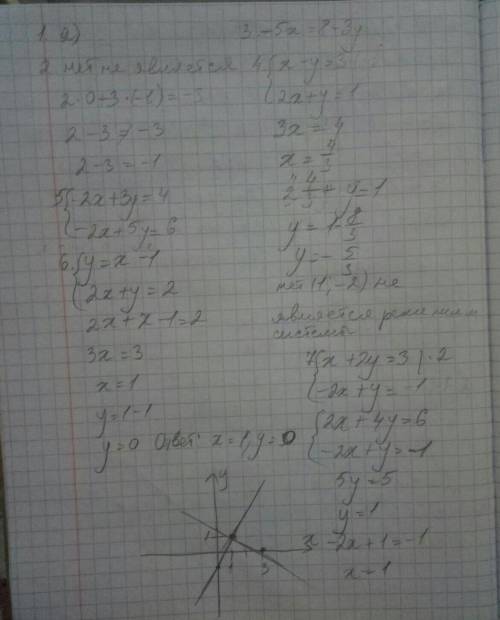 1 а)
2 нет не является
2·0+3·(-1)=-3
2-3≠-3
2-3=-1
5{-2x+3y=4
{-2x+5y=6
6.{y=x-1
{2x+y=2
2x+x-1=2
3x=3
x=1
y=1-1
y=0 Ответ: x=1, y=0
3.-5x=8-3y
4{x-y=3
{2x+y=1
3x=4
x=4/3
2·4/3+y=1
y=1-8/3
y=-5/3
нет (1,-2) не
является решением
системы
7{x+2y=3|·2
{-2x+y=-1
{2x+4y=6
{-2x+y=-1
5y=5
y=1
-2x+1=-1
x=1
y
1
1
3
x